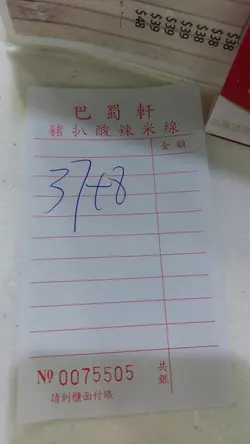 $38
$39
$39
$38
$48
巴蜀軒
豬扒酸辣米線
金額
37+8
No 0075505
共銀
請到櫃面付賬